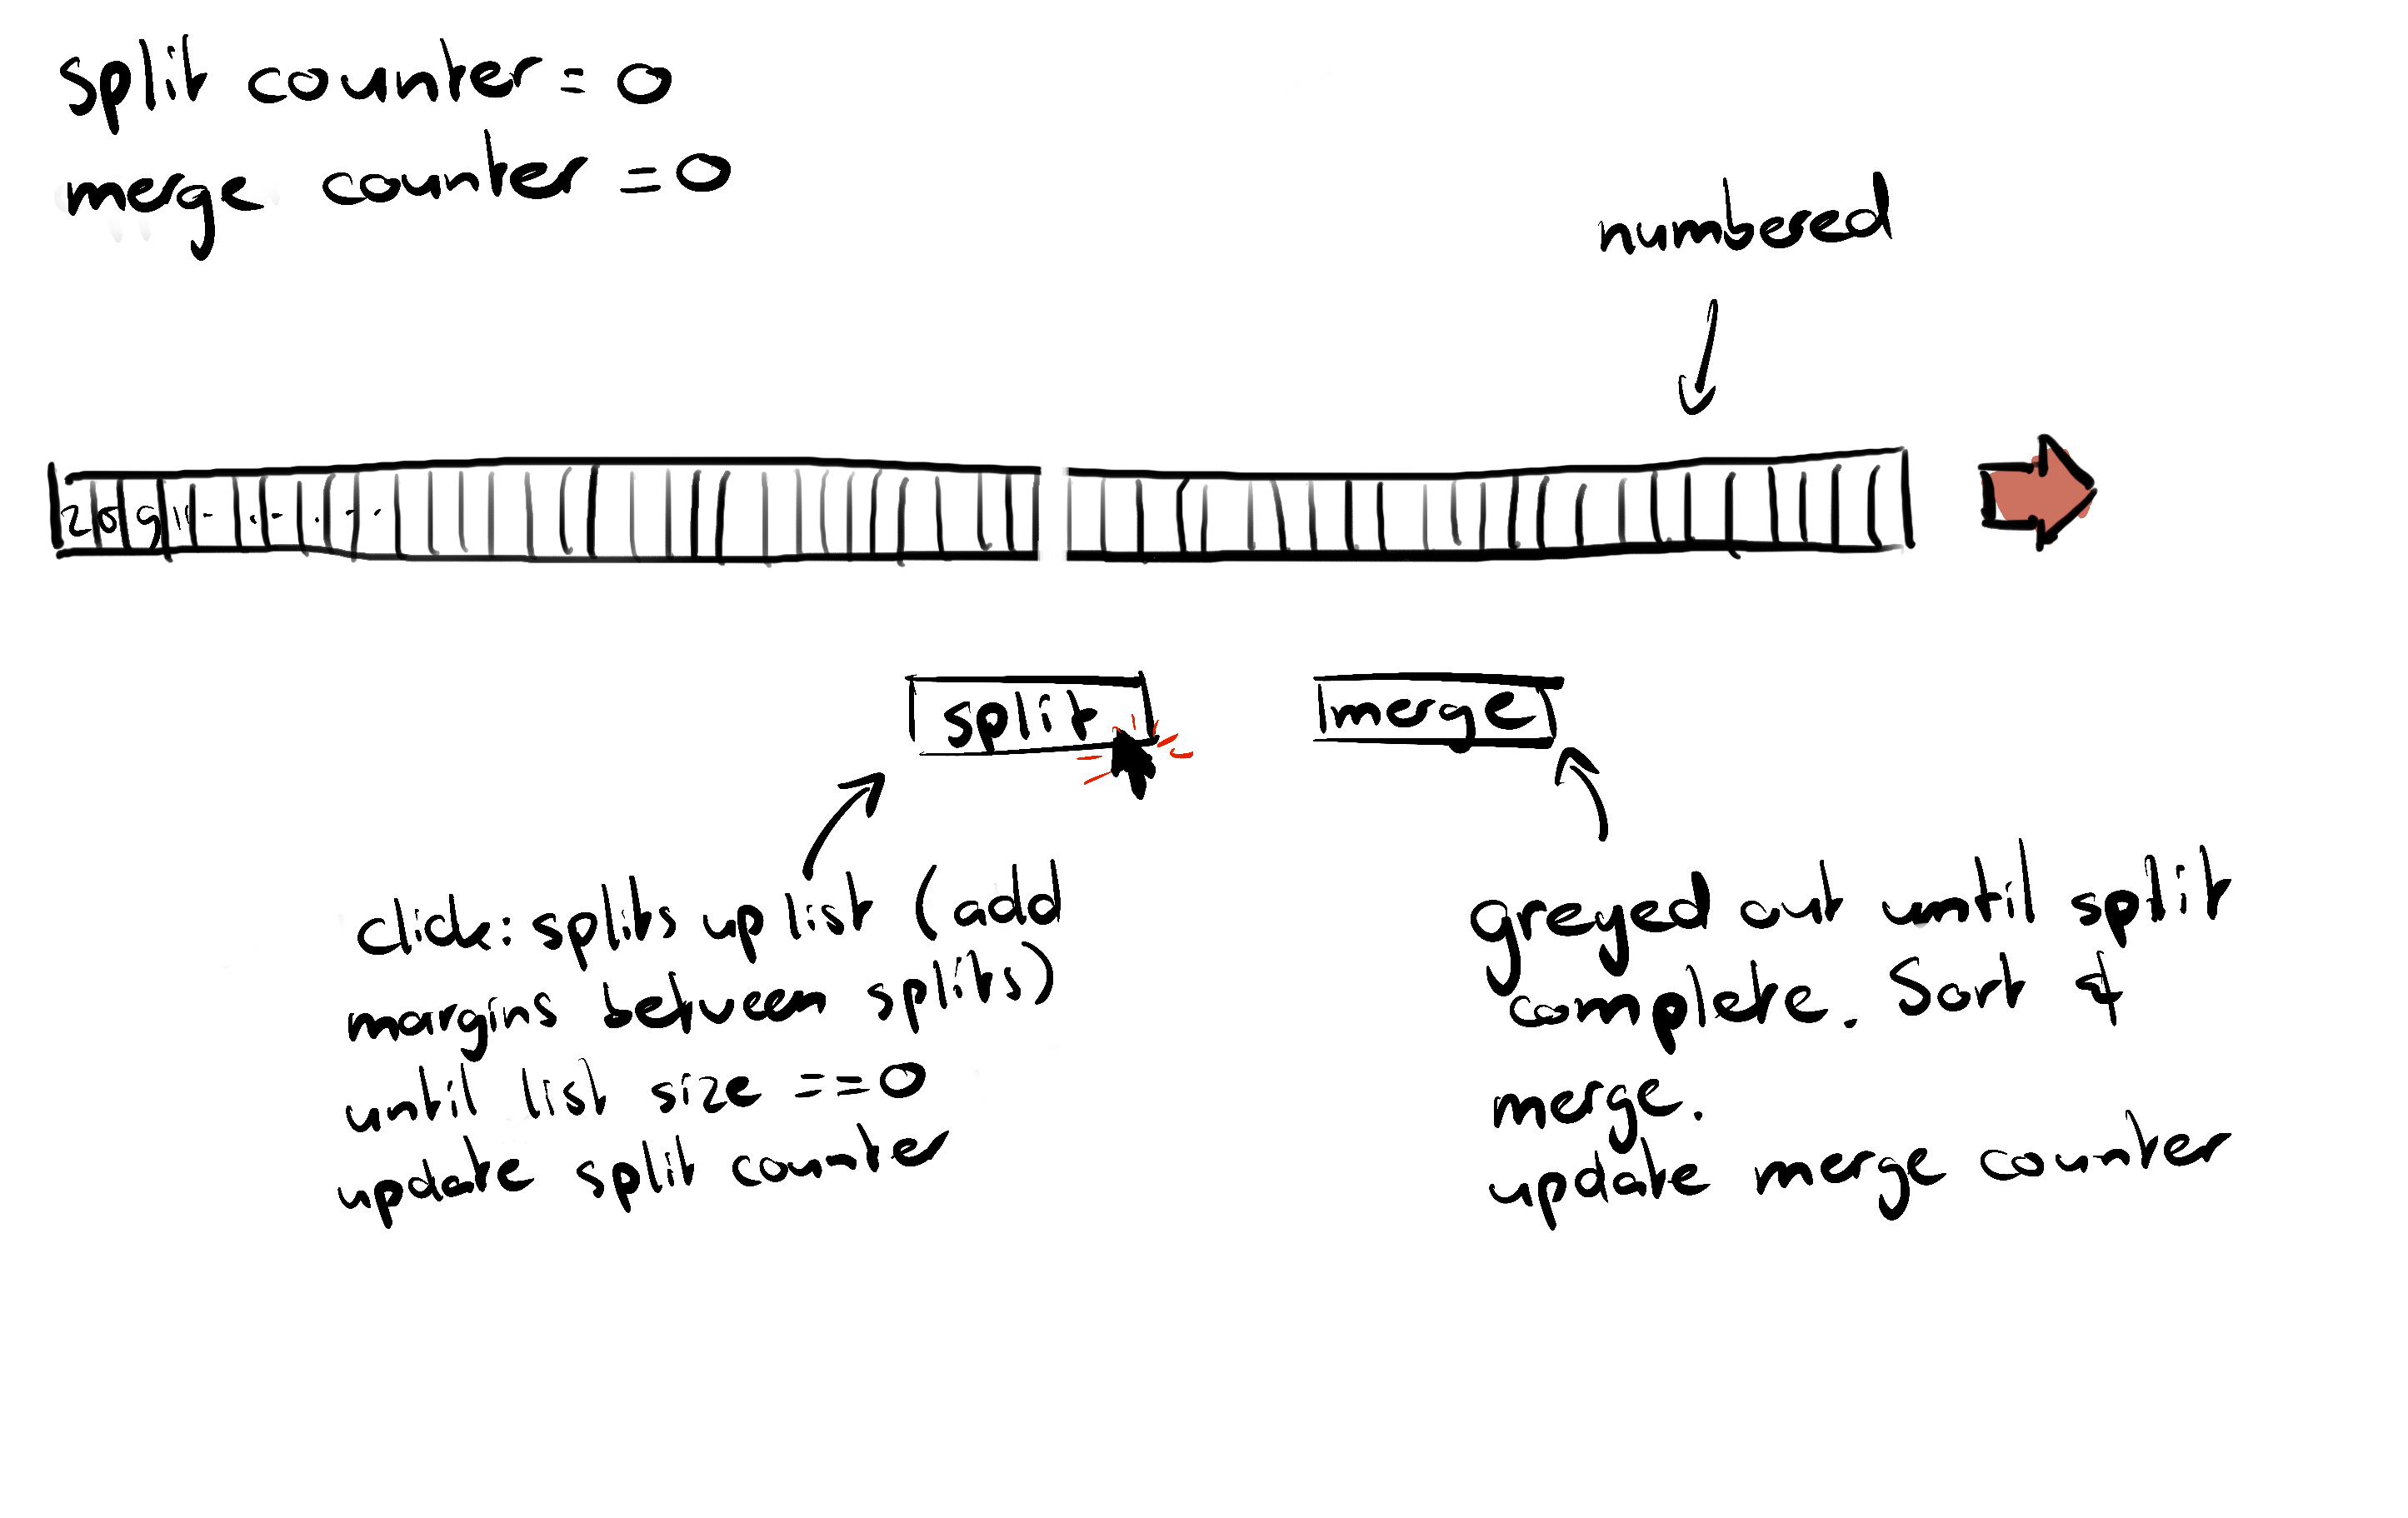 split counter = 0
merge counter = 0
numbered
2 6 9 11
split
merge
click: splits up list (add
margins between splits)
until list size == 0
update split counter
greyed out until split
complete. Sort &
merge.
update merge counter